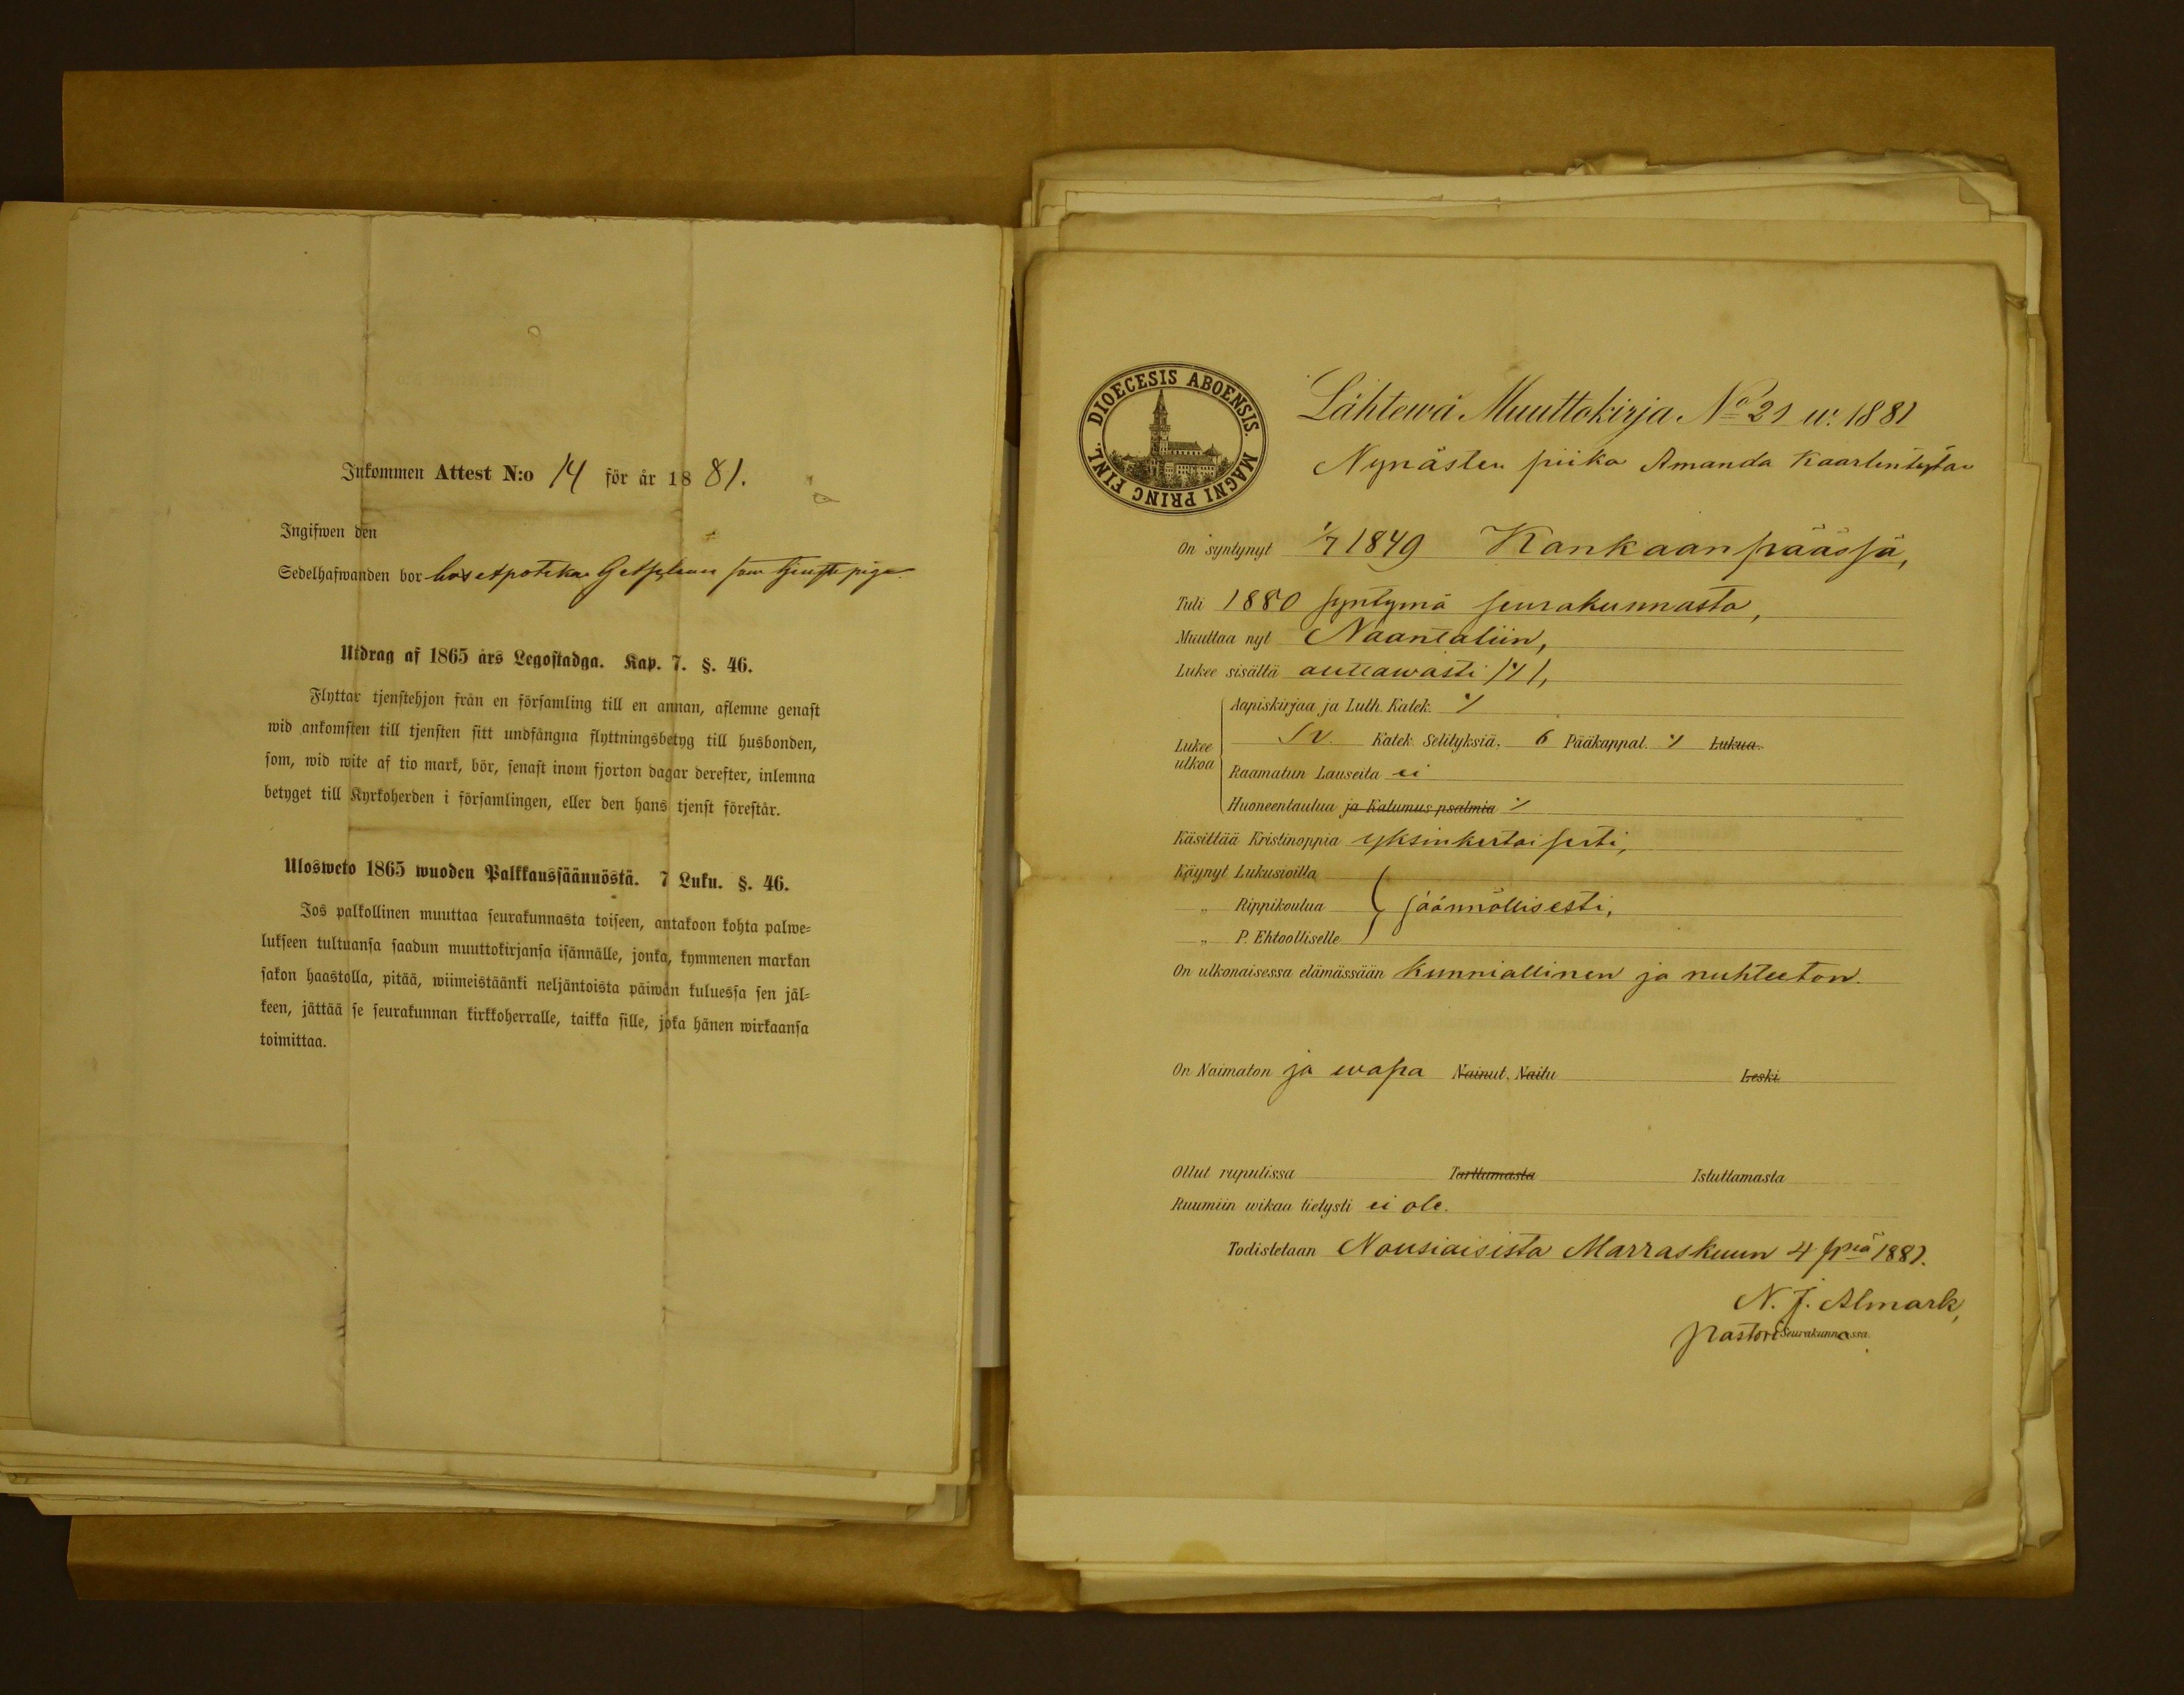 Inkommen Attest N:o 14 för år 1881.
Ingifwen den
Sedelhafwanden bor hos Apotekar som tjenste piga.
Utdrag af 1865 års Legostadga. Kap. 7. §. 46.
Flyttar tjenstehjon från en församling till en annan, aflemne genast
wid ankomsten till tjensten sitt undfångna flyttningsbetyg till husbonden,
som, wid wite af tio mark, bör, senast inom fjorton dagar derefter, inlemna
betyget till Kyrkoherden i församlingen, eller den hans tjenst förestår.
Ulosweto 1865 wuoden Palkkaussäännöstä. 7 Luku. §. 46.
Jos palkollinen muuttaa seurakunnasta toiseen, antakoon kohta palwe=
lukseen tultuansa saadun muuttokirjansa isännälle, jonka, kymmenen markan
sakon haastolla, pitää, wiimeistäänki neljäntoista päiwän kuluessa sen jäl=
keen, jättää se seurakunnan kirkkoherralle, taikka sille, joka hänen wirkaansa
toimittaa.
DIOECESIS ABOENSIS. MAGNI PRINC FINL.
Lähtewä Muuttokirja No 21 w. 1881
Nynästen piika Amanda Kaarlentytar
On syntynyt 1/7 1849 Kankaanpäässä,
Tuli 1880 syntymä seurakunnasta,
Muuttaa nyt Naantaliin,
Lukee sisältä auttawasti /4/,
Aapiskirjaa ja Luth. Katek. %
Lukee ulkoa Sv. Katek. Selityksiä. 6 Pääkappal. % Lukua.
Raamatun Lauseita ei
Huoneentaulua ja Katumus psalmia %
Käsittää Kristinoppia yksinkertaisesti,
Käynyt Lukusioilla
„ Rippikoulua säännöllisesti,
„ P. Ehtoolliselle
On ulkonaisessa elämässään kunniallinen ja nuhteeton.
On Naimaton ja wapa Nainut. Naitu Leski
Ollut rupulissa Tarttumasta Istuttamasta
Ruumiin wikaa tietysti ei ole.
Todistetaan Nousiaisista Marraskuun 4 pnä 1881.
N. J. Almark,
pastori Seurakunnassa.